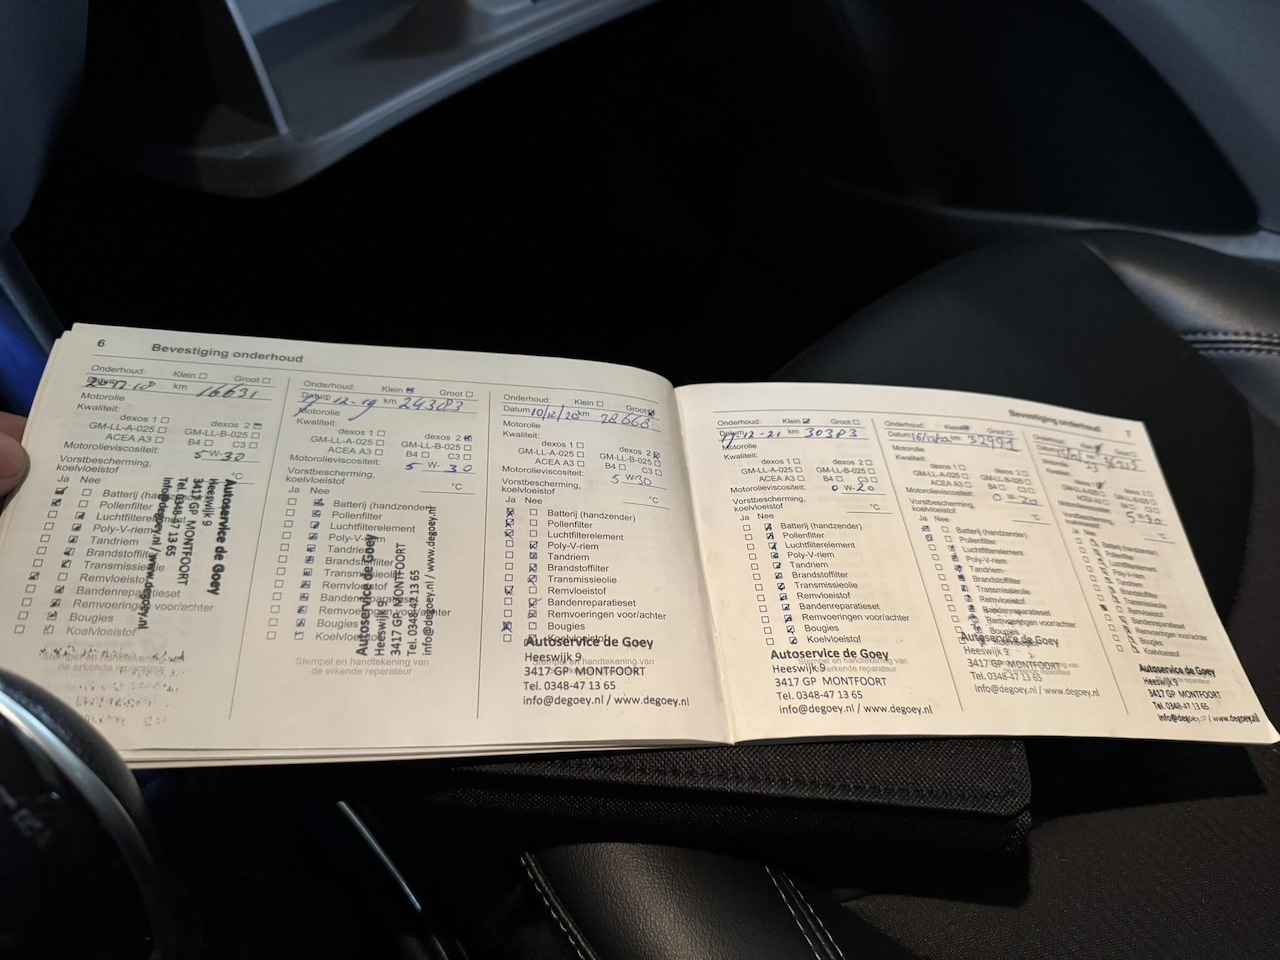 6
Bevestiging onderhoud
Onderhoud: Klein Groot
km 16631
Motorolie
Kwaliteit:
dexos 1 dexos 2
GM-LL-A-025 GM-LL-B-025
ACEA A3 B4 C3
Motorolieviscositeit: 5 W-30
Vorstbescherming,
koelvloeistof °C
Ja Nee
Batterij (handzender)
Pollenfilter
Luchtfilterelement
Poly-V-riem
Tandriem
Brandstoffilter
Transmissieolie
Remvloeistof
Bandenreparatieset
Remvoeringen voor/achter
Bougies
Koelvloeistof
Autoservice de Goey
Heeswijk 9
3417 GP MONTFOORT
Tel. 0348-47 13 65
info@degoey.nl / www.degoey.nl
Onderhoud: Klein Groot
Datum 12-19 km 24383
Motorolie
Kwaliteit:
dexos 1 dexos 2
GM-LL-A-025 GM-LL-B-025
ACEA A3 B4 C3
Motorolieviscositeit: 5 W-30
Vorstbescherming,
koelvloeistof °C
Ja Nee
Batterij (handzender)
Pollenfilter
Luchtfilterelement
Poly-V-riem
Tandriem
Brandstoffilter
Transmissieolie
Remvloeistof
Bandenreparatieset
Remvoeringen voor/achter
Bougies
Koelvloeistof
Stempel en handtekening van
de erkende reparateur
Autoservice de Goey
Heeswijk 9
3417 GP MONTFOORT
Tel. 0348-47 13 65
info@degoey.nl / www.degoey.nl
Onderhoud: Klein Groot
Datum 10/12/20 km 28668
Motorolie
Kwaliteit:
dexos 1 dexos 2
GM-LL-A-025 GM-LL-B-025
ACEA A3 B4 C3
Motorolieviscositeit: 5 W30
Vorstbescherming,
koelvloeistof °C
Ja Nee
Batterij (handzender)
Pollenfilter
Luchtfilterelement
Poly-V-riem
Tandriem
Brandstoffilter
Transmissieolie
Remvloeistof
Bandenreparatieset
Remvoeringen voor/achter
Bougies
Koelvloeistof
Autoservice de Goey
Heeswijk 9
3417 GP MONTFOORT
Tel. 0348-47 13 65
info@degoey.nl / www.degoey.nl
Bevestiging onderhoud
7
Onderhoud: Klein Groot
Datum 12-21 km 30383
Motorolie
Kwaliteit:
dexos 1 dexos 2
GM-LL-A-025 GM-LL-B-025
ACEA A3 B4 C3
Motorolieviscositeit: 0 W-20
Vorstbescherming,
koelvloeistof °C
Ja Nee
Batterij (handzender)
Pollenfilter
Luchtfilterelement
Poly-V-riem
Tandriem
Brandstoffilter
Transmissieolie
Remvloeistof
Bandenreparatieset
Remvoeringen voor/achter
Bougies
Koelvloeistof
Stempel en handtekening van
de erkende reparateur
Autoservice de Goey
Heeswijk 9
3417 GP MONTFOORT
Tel. 0348-47 13 65
info@degoey.nl / www.degoey.nl
Onderhoud: Klein Groot
Datum km 32991
Motorolie
Kwaliteit:
dexos 1 dexos 2
GM-LL-A-025 GM-LL-B-025
ACEA A3 B4 C3
Motorolieviscositeit: 0 W-20
Vorstbescherming,
koelvloeistof °C
Ja Nee
Batterij (handzender)
Pollenfilter
Luchtfilterelement
Poly-V-riem
Tandriem
Brandstoffilter
Transmissieolie
Remvloeistof
Bandenreparatieset
Remvoeringen voor/achter
Bougies
Autoservice de Goey
Heeswijk 9
3417 GP MONTFOORT
Tel. 0348-47 13 65
info@degoey.nl / www.degoey.nl
Onderhoud: Klein Groot
Datum
Motorolie
Kwaliteit:
Motorolieviscositeit: 5-30
Vorstbescherming,
koelvloeistof °C
Ja Nee
Batterij (handzender)
Pollenfilter
Luchtfilterelement
Poly-V-riem
Tandriem
Brandstoffilter
Transmissieolie
Remvloeistof
Bandenreparatieset
Remvoeringen voor/achter
Bougies
Koelvloeistof
Autoservice de Goey
Heeswijk 9
3417 GP MONTFOORT
Tel. 0348-47 13 65
info@degoey.nl / www.degoey.nl